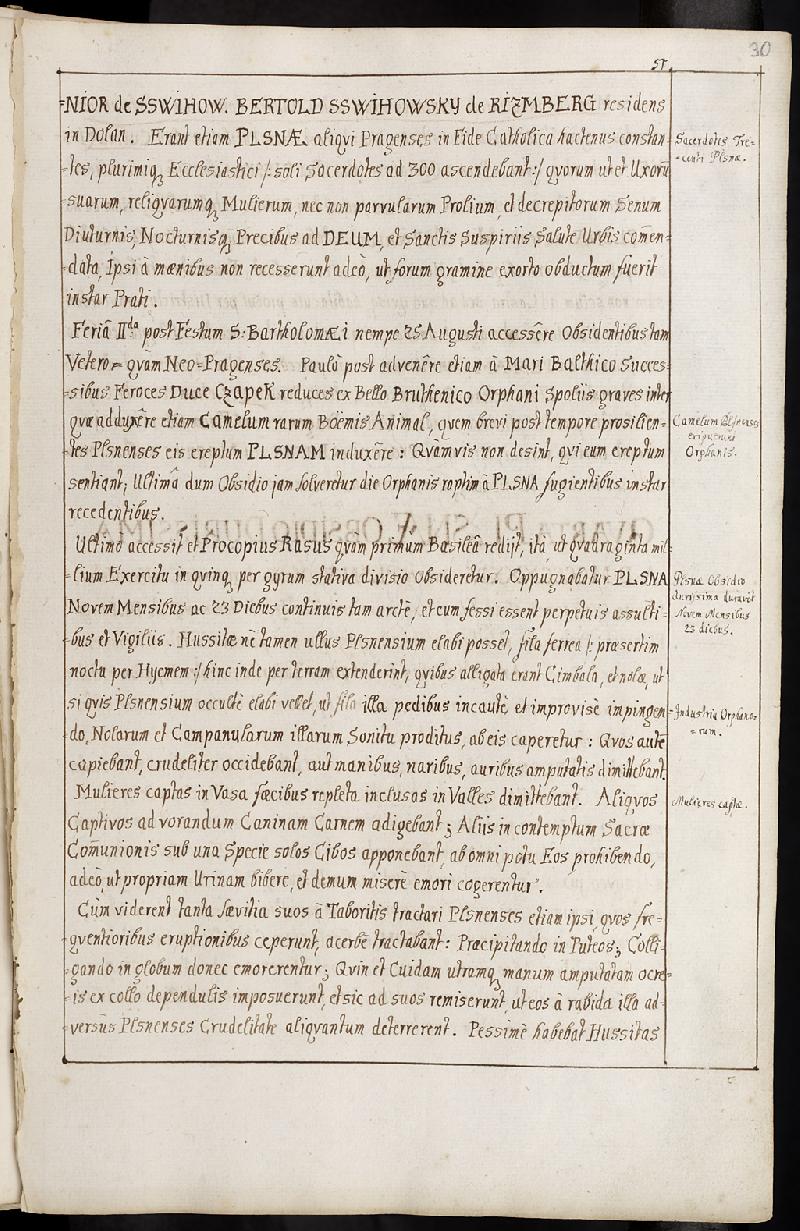 30
57.
NIOR de SSWIHOW. BERTOLD SSWIHOWSKY de RIZMBERG residens
in Dolan. Erant etiam PLSNÆ aliqvi Pragenses in Fide Catholica hactenus constan=
=tes, plurimiq; Ecclesiastici /: soli Sacerdotes ad 300 ascendebant :/ qvorum ut et Uxorū
suarum, reliqvarumq; Mulierum, nec non parvularum Prolium, et decrepitorum Senum
Diuturnis, Nocturnisq; Precibus ad DEUM, et Sanctis Suspiriis Salute Urbis com̄en=
=data, Ipsi à mænibus non recesserunt adeò, ut forum gramine exorto obductum fuerit
instar Prati.
Sacerdotes Tre=
=centi Plsnæ.
Feriâ IIda post Festum S. Bartholomæi nempe 25 Augusti accessêre Obsidentibus tam
Vetero= qvàm Neo=Pragenses. Paulò post advenêre etiam à Mari Balthico Succes=
=sibus Feroces Duce Czapek reduces ex Bello Bruthenico Orphani Spoliis graves inter
qvæ adduxêre etiam Camelum rarum Boëmis Animal, qvem brevi post tempore prosilien=
=tes Plsnenses eis ereptum PLSNAM induxêre: Qvamvis non desint, qvi eum ereptum
sentiant, Ultimâ dum Obsidio jam solveretur die Orphanis raptim à PLSNA fugientibus instar
recedentibus.
Camelum Plsnenses
eripuerunt
Orphanis.
Ultimò accessit et Procopius Rasus qvam primùm Basileâ redijt, ità ut qvadraginta mil=
=lium Exercitu in qvinq; per gyrum stativa diviso obsideretur. Oppugnabatur PLSNA
Novem Mensibus ac 23 Diebus continuis tam arctè, et cum fessi essent perpetuis assulti=
=bus et Vigiliis. Hussitæ nè tamen ullus Plsnensium elabi posset, fila ferrea /: præsertim
noctu per Hyemem :/ hinc inde per terram extenderint, qvibus alligata erant Cimbala, et nolæ, ut
si qvis Plsnensium occultè elabi vellet, ut fila illa pedibus incautè et improvisè impingen=
do, Nolarum et Campanularum illarum Sonitu proditus, ab eis caperetur: Qvos autē
capiebant, crudeliter occidebant, aut manibus, naribus, auribus amputatis dimittebant.
Mulieres captas in Vasa fæcibus repleta inclusas in Valles dimittebant. Aliqvos
Captivos ad vorandum Caninam Carnem adigebant; Aliis in contemptum Sacræ
Com̄unionis sub una Specie solos Cibos apponebant, ab omni potu Eos prohibendo,
adeò, ut propriam Urinam bibere, et demum miserè emori cogerentur.
Plsnæ Obsidio
durissima duravit
Novem Mensibus
23 diebus.
=Industria Orphano=
=rum.
Mulieres captæ.
Cùm viderent tanta sævitia suos à Taboritis tractari Plsnenses etiam ipsi, qvos fre=
qventioribus eruptionibus ceperunt, acerbè tractabant: Præcipitando in Puteos; Colli=
gando in globum donec emorerentur; Qvin et Cuidam utramq; manum amputatam ocre=
=is ex collo dependulis imposuerunt, et sic ad suos remiserunt, ut eos à rabida illa ad=
versùs Plsnenses Crudelitate aliqvantum deterrerent. Pessimè habebat Hussitas